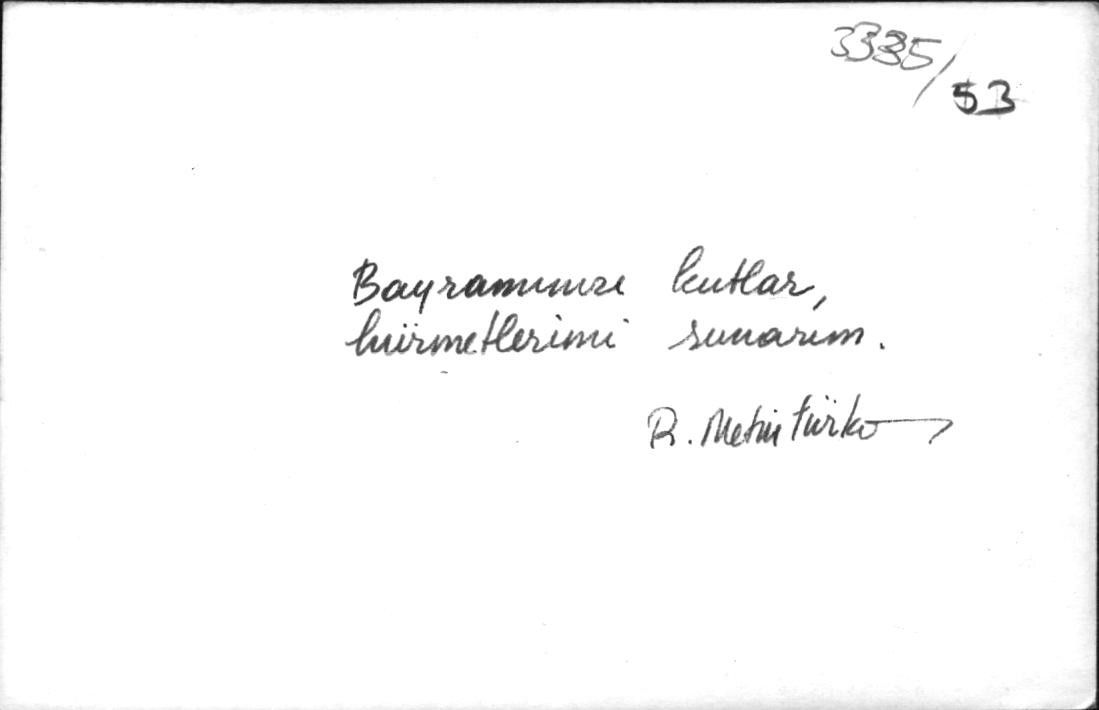 3335/53
Bayramınızı kutlar,
hürmetlerimi sunarım.
R. Metin Türko